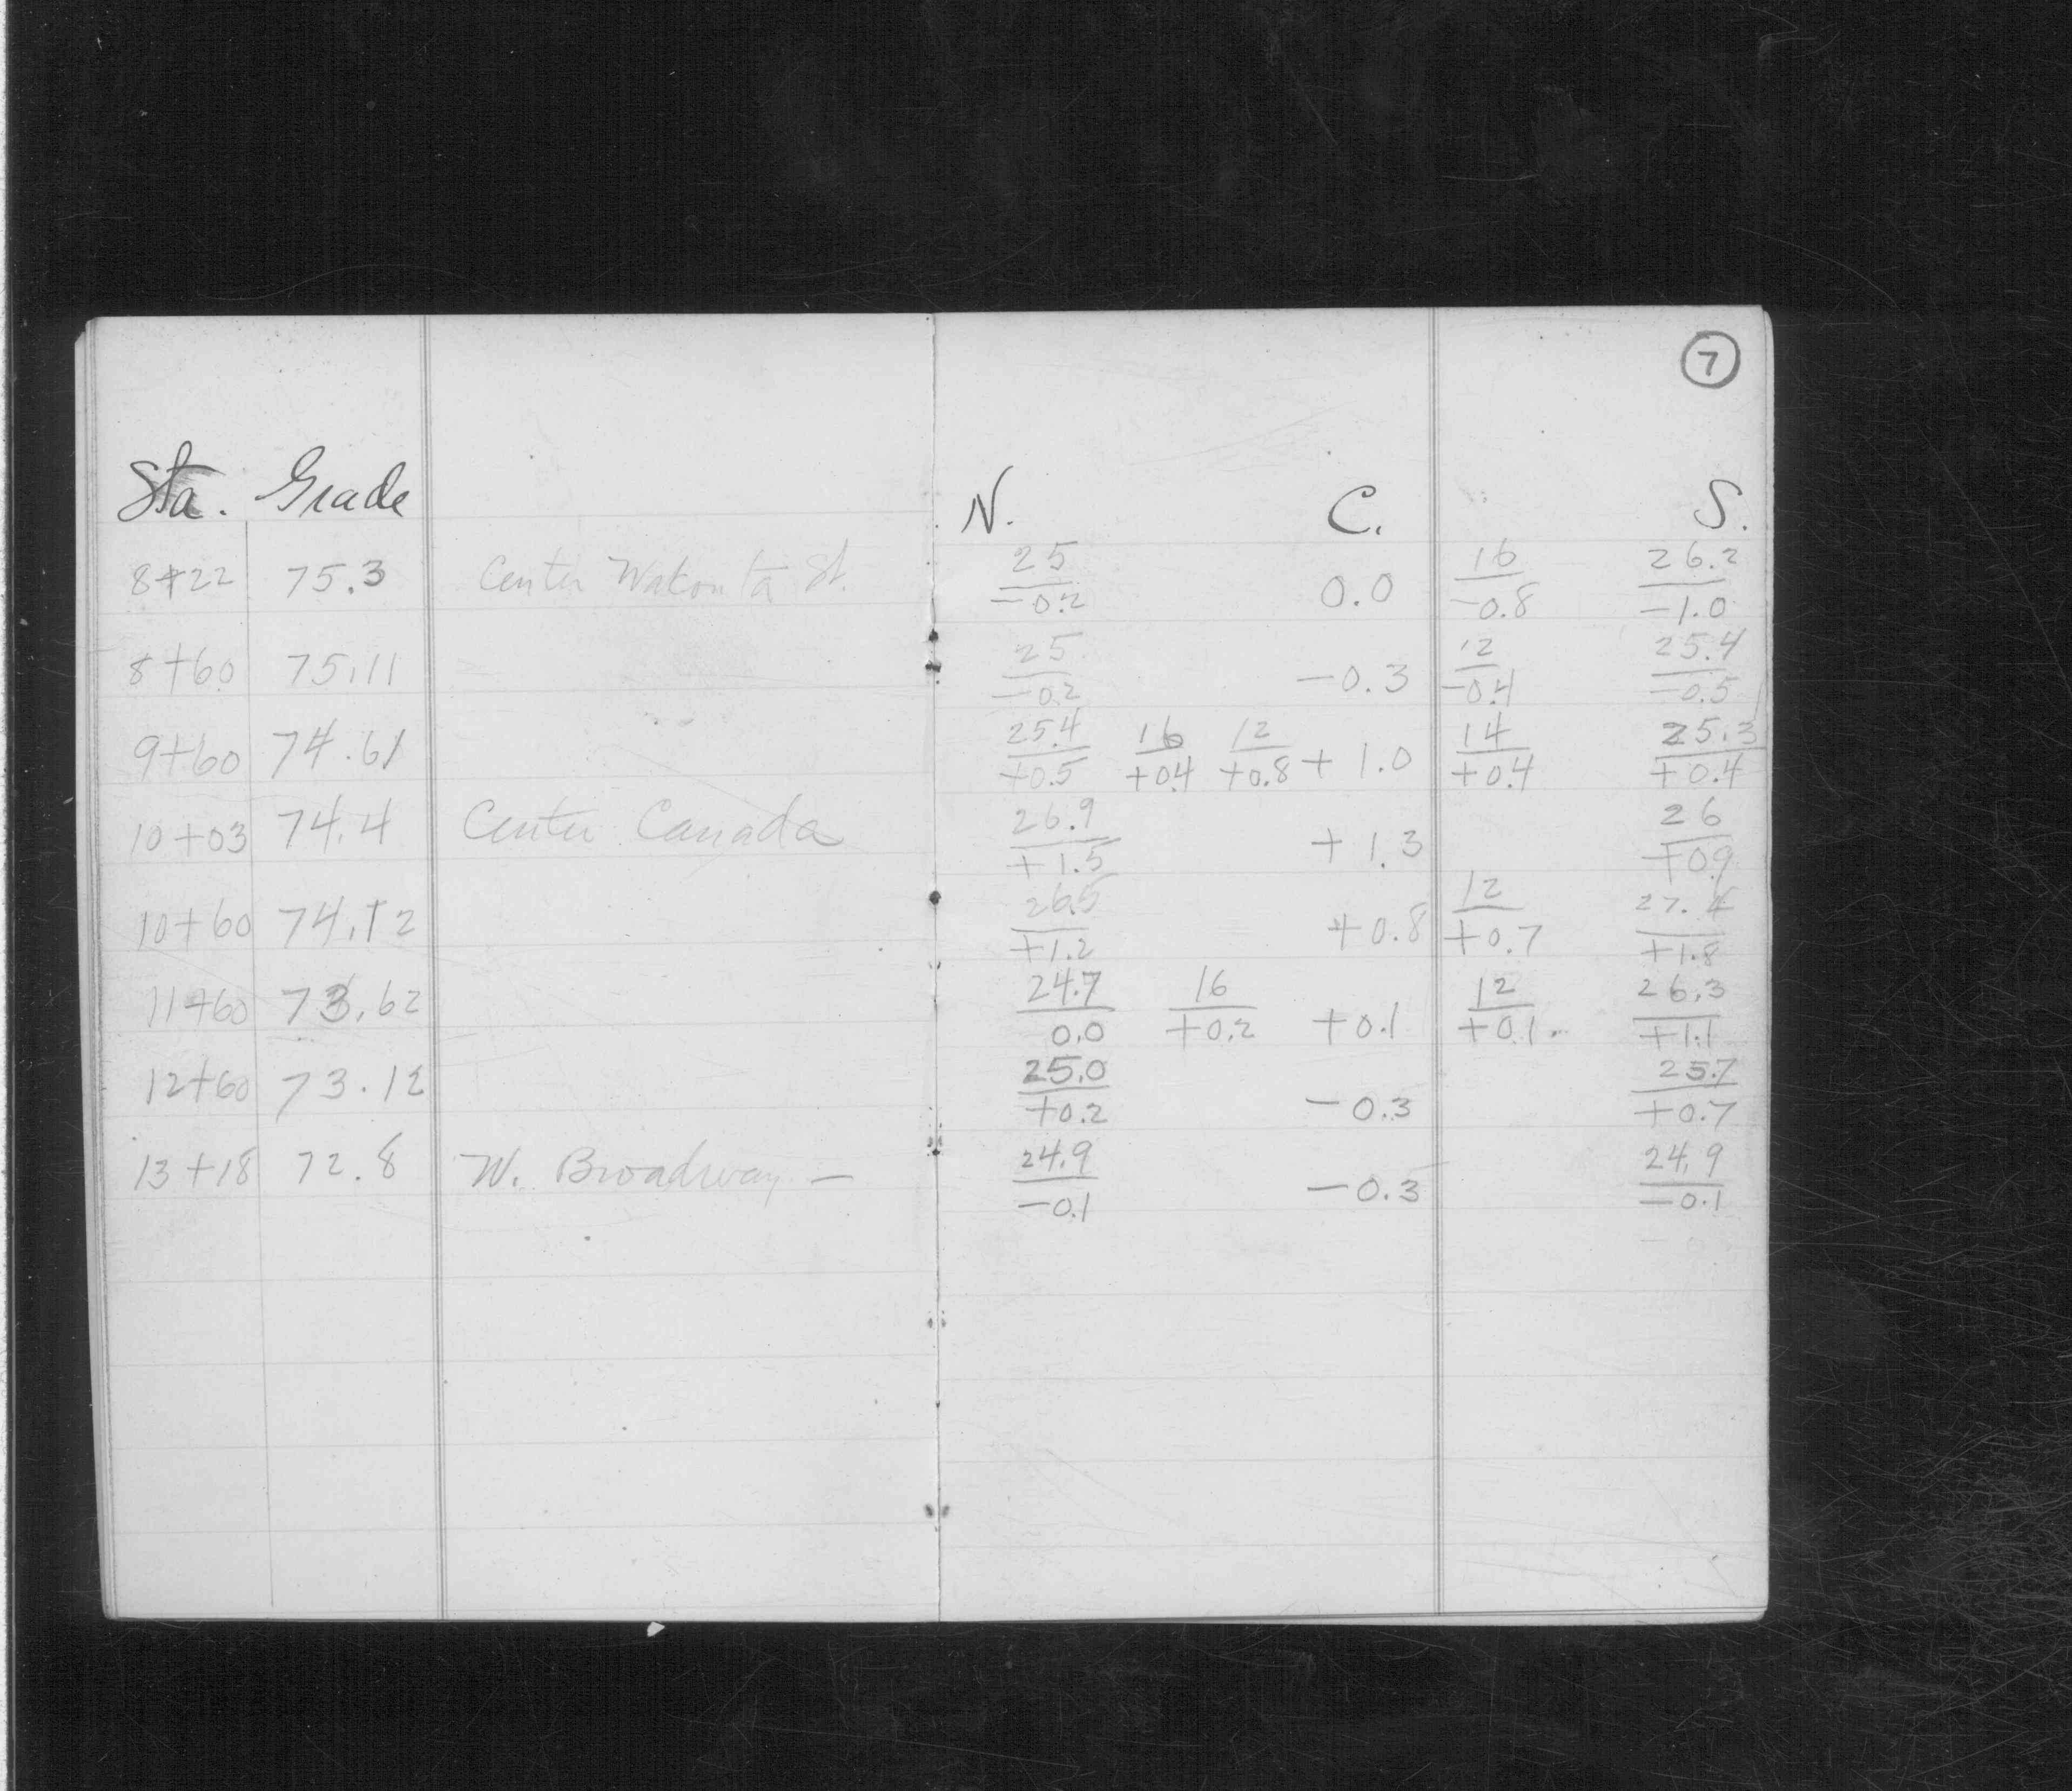 7
Sta. Grade N. C. S.
8+22 75.3 Center Wakonta St. 25/-0.2 0.0 16/-0.8 26.2/-1.0
8+60 75.11 25/-0.2 -0.3 12/-0.4 25.4/-0.5
9+60 74.61 25.4/+0.5 16/+0.4 12/+0.8 +1.0 14/+0.4 25.3/+0.4
10+03 74.4 Center Canada 26.9/+1.5 +1.3 26/+0.9
10+60 74.12 26.5/+1.2 +0.8 12/+0.7 27.4/+1.8
11+60 73.62 24.7/0.0 16/+0.2 +0.1 12/+0.1 26.3/+1.1
12+60 73.12 25.0/+0.2 -0.3 25.7/+0.7
13+18 72.8 W. Broadway — 24.9/-0.1 -0.3 24.9/-0.1